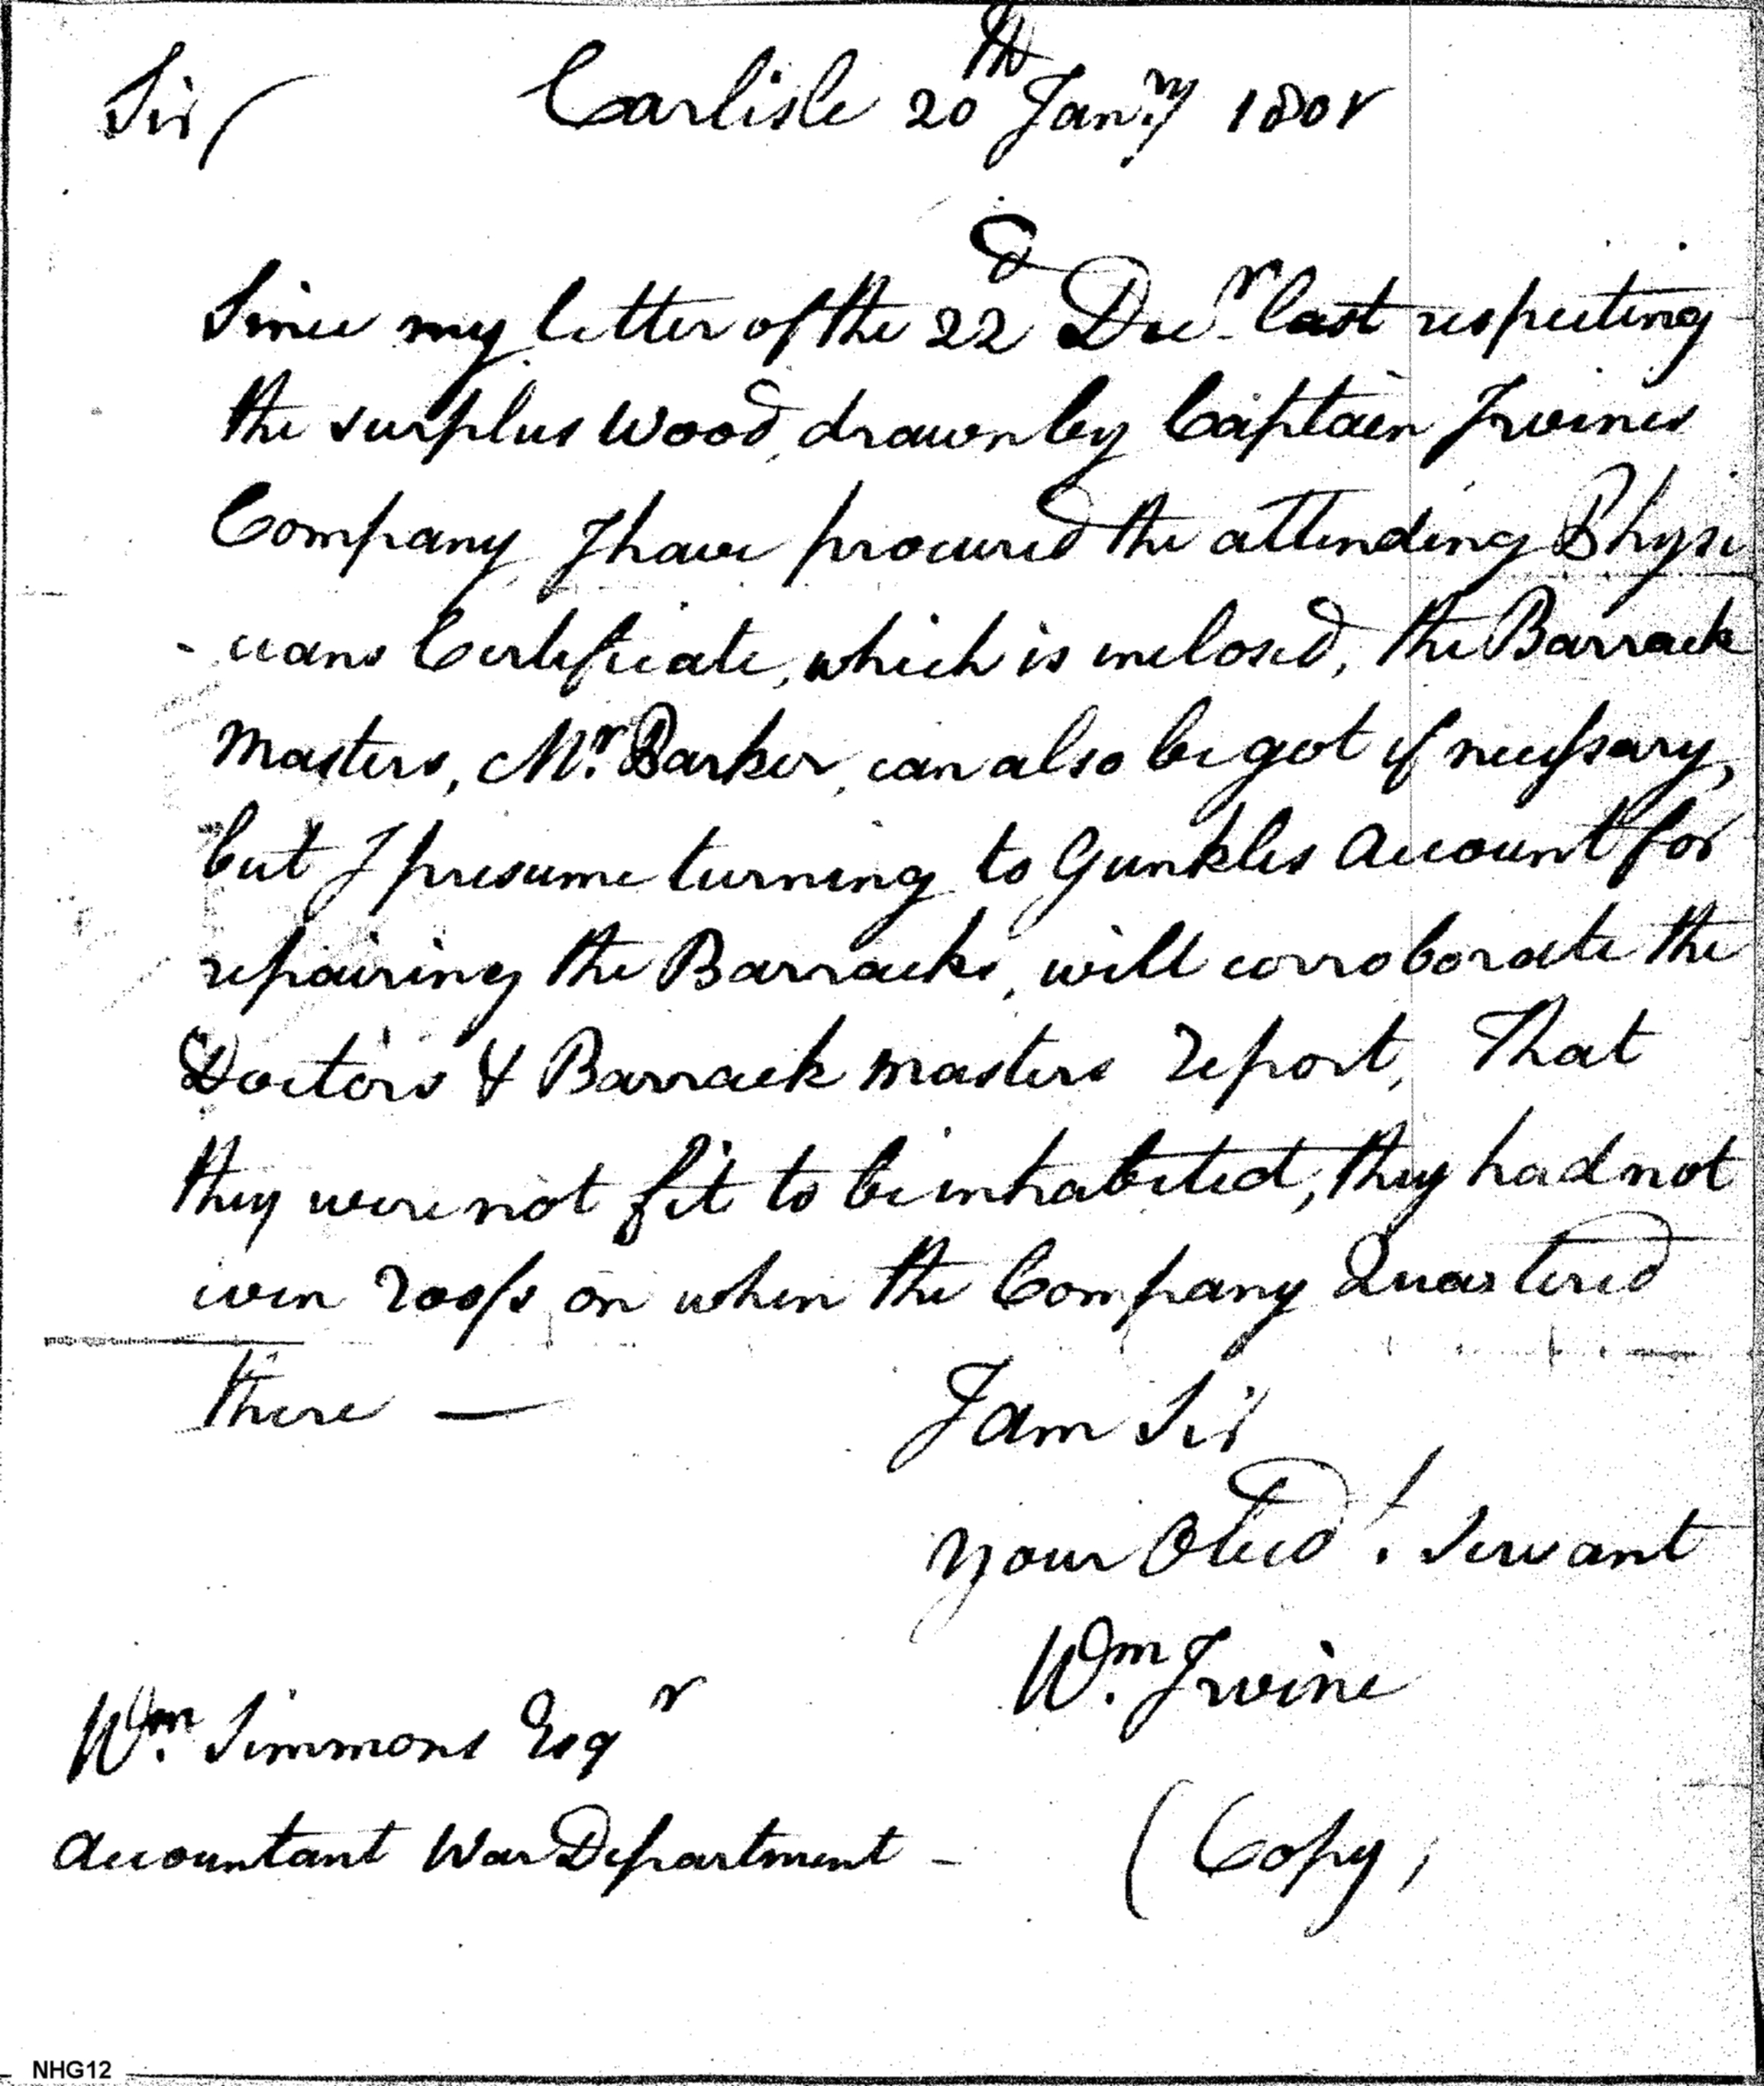 Sir/ Carlisle 20th Jany 1801
Since my letter of the 22d Decr last respecting
the surplus Wood, drawn by Captain Irvines
Company, I have procured the attending Physi
-cians Certificate, which is inclosed, the Barrack
Masters, Mr. Barker, can also be got if necessary,
but I presume turning to Gunkles Account for
repairing the Barracks, will corroborate the
Doctors & Barrack masters report, That
they were not fit to be inhabited, they had not
even roofs on when the Company Quartered
there —
I am Sir
your Obed.t Servant
Wm. Irvine
Wm. Simmons Esqr
Accountant War Department -
(Copy)
NHG12